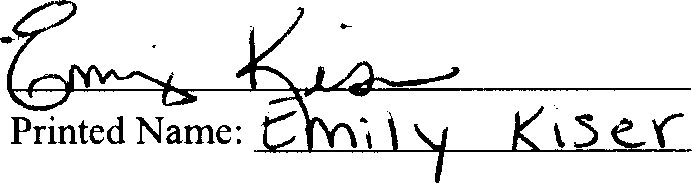 Emily Kiser
Printed Name: Emily Kiser